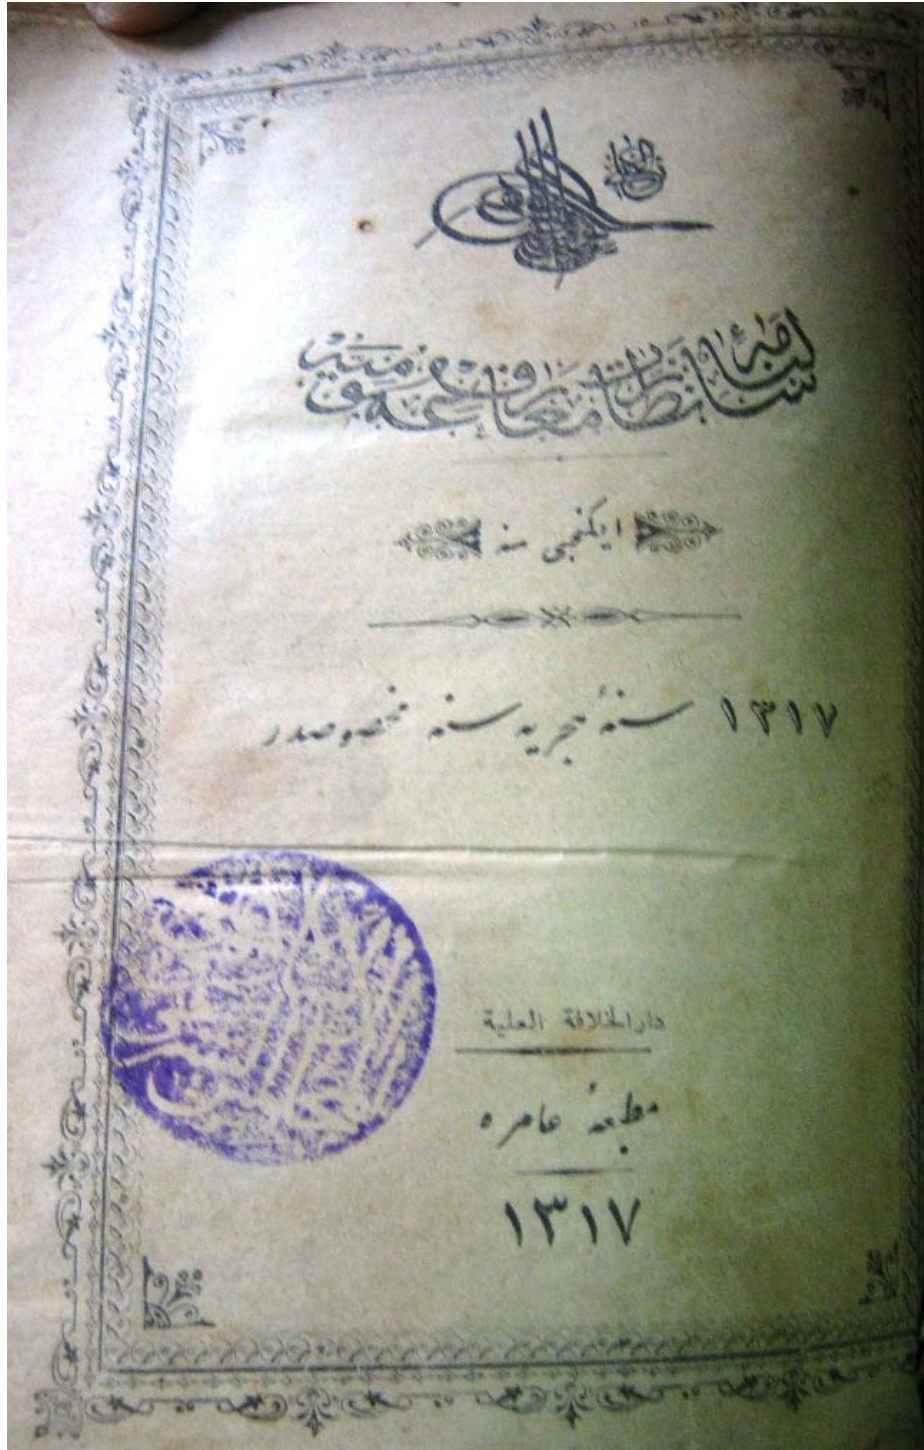 الغازى
سالنامۀ نظارت معارف عمومیه
ایكنجی سنه
١٣١٧ سنۀ هجریه سنه مخصوصدر
دارالخلافة العلیة
مطبعۀ عامره
١٣١٧